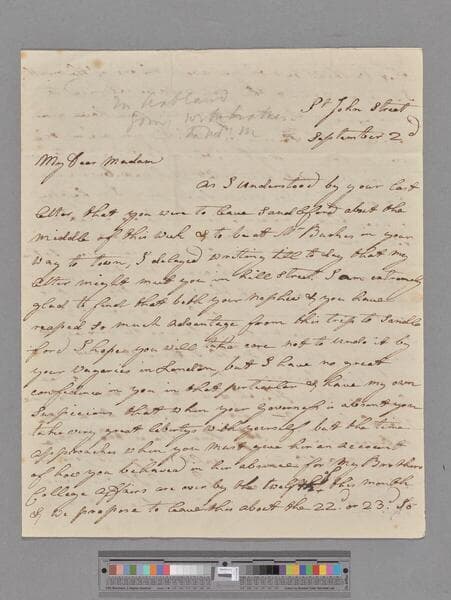 St John Street
September 2d
My Dear Madam
as I understood by your last
letter, that you were to leave Sandleford about the
middle of this week & to be at Mr Burkes in your
way to town, I delayed writing till to day that my
letter might meet you in hill Street I am extremely
glad to find that both your Nephew & you have
reaped so much advantage from this trip to Sandle
ford I hope you will take care not to undo it by
your Vagaries in London, but I have no great
confidence in you in that perticuler & have my own
Suspicions that when your Governess is absent you
take very great libertys with yourself but the time
approaches when you must give her an account
of how you behaved in her absence for My Brothers
College affairs are over by the twelfth of this month
& we propose to leave this about the 22d or 23d So